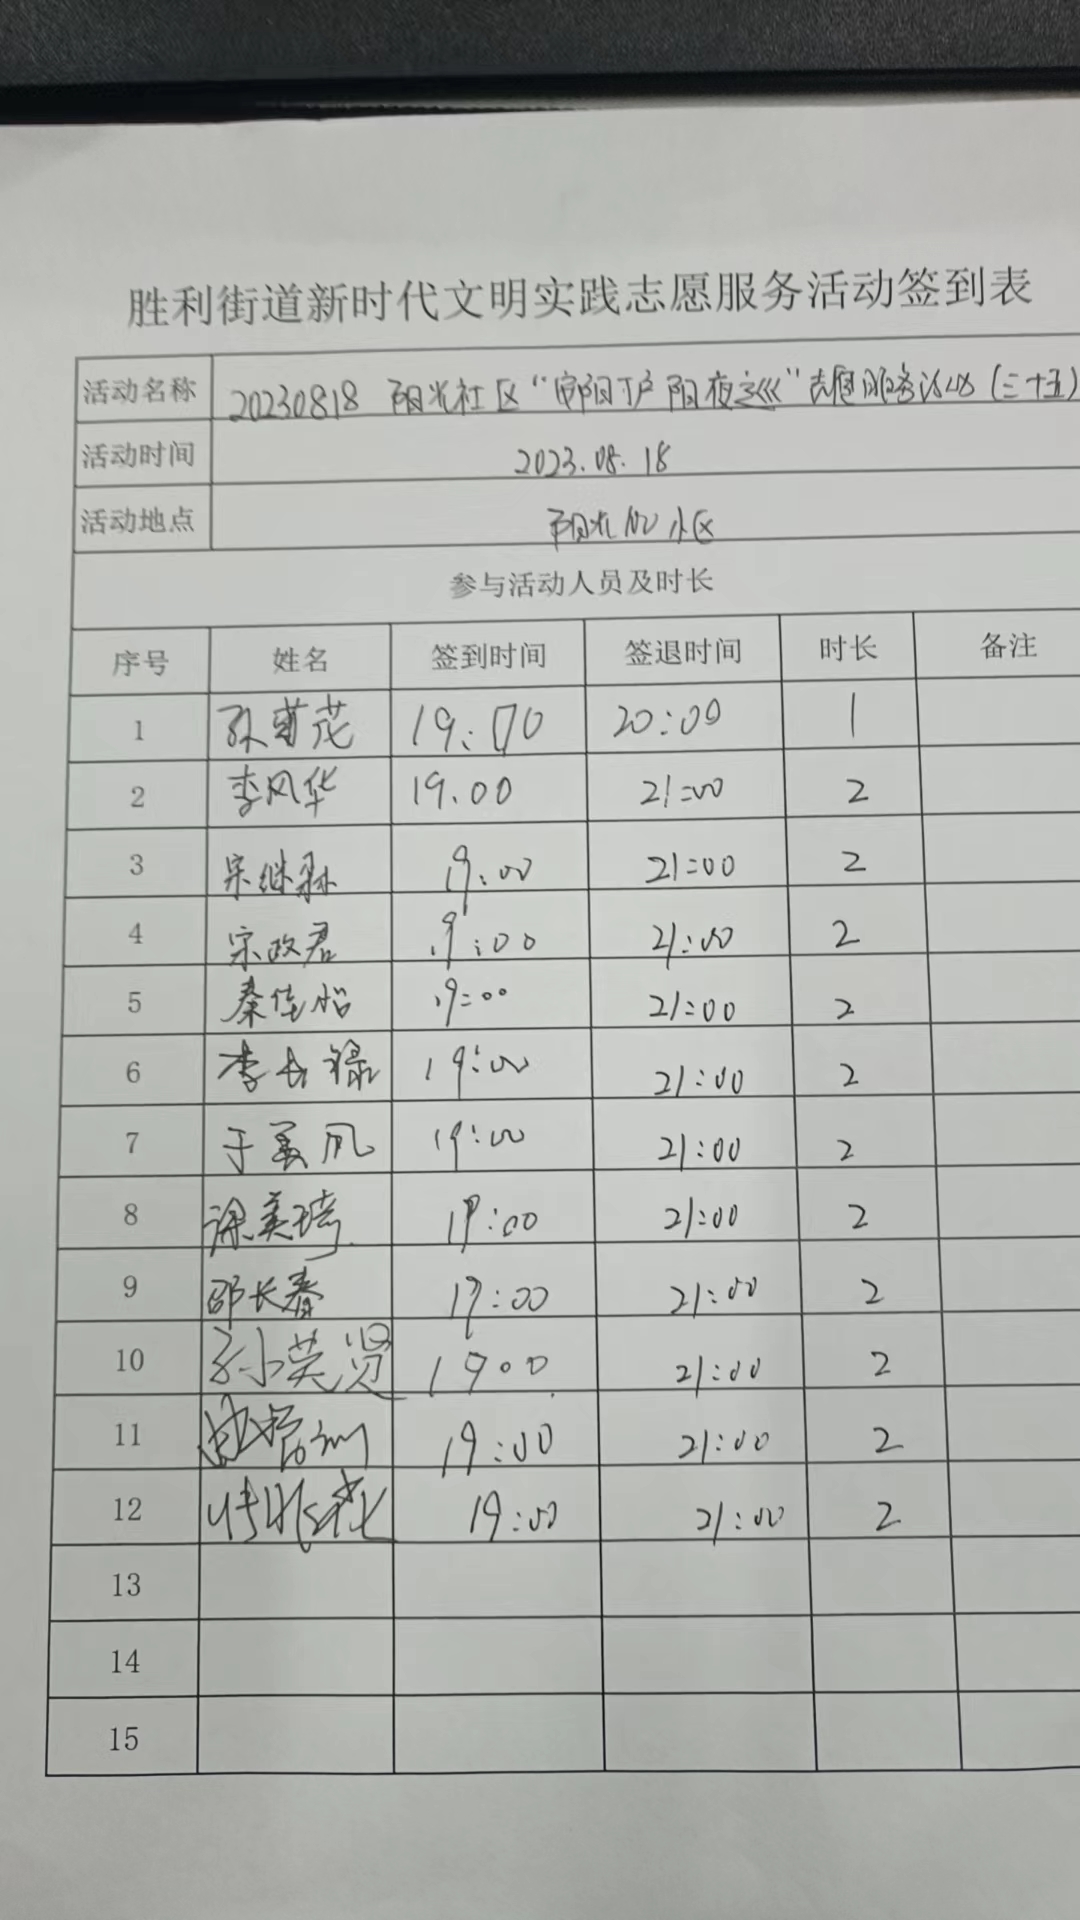 胜利街道新时代文明实践志愿服务活动签到表
活动名称 20230818 阳光社区“ 阳夜巡”志愿服务活动(三十五)
活动时间 2023.08.18
活动地点 阳光100小区
参与活动人员及时长
序号 姓名 签到时间 签退时间 时长 备注
1 孙菊花 19:00 20:00 1
2 李风华 19.00 21:00 2
3 宋继 19:00 21:00 2
4 宋政君 19:00 21:00 2
5 秦佳怡 19:00 21:00 2
6 李长禄 19:00 21:00 2
7 于美凤 19:00 21:00 2
8 徐美琦 19:00 21:00 2
9 邵长春 19:00 21:00 2
10 孙英贤 1900 21:00 2
11 19:00 21:00 2
12 19:00 21:00 2
13
14
15